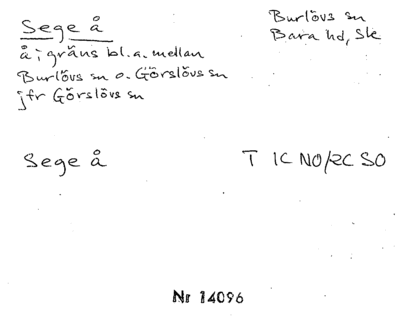 Sege å
Burlövs sn
Bara hd, Ske
å; gräns bl.a. mellan
Burlövs sn o. Görslövs sn
jfr Görslövs sn
Sege å
T 1C NO/2C SO
Nr 14096